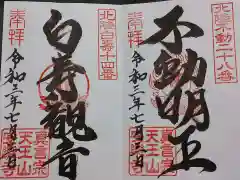 北陸不動二十八番
奉拝
不動明王
令和三年七月三日
真言宗
天王山
北陸白寿十四番
奉拝
白寿観音
令和三年七月三日
真言宗
天王山